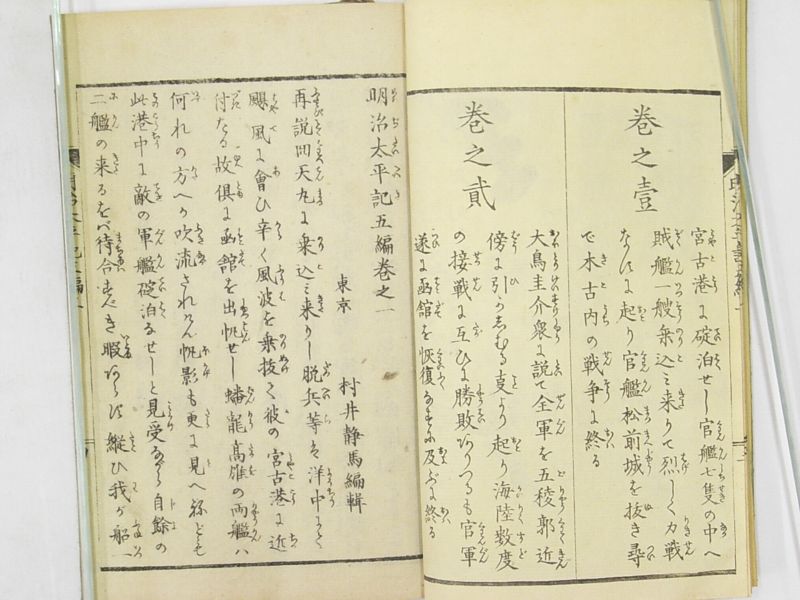 卷之壹
宮古港に碇泊せし官艦七隻の中へ
賊艦一艘乗込み来りて烈しく力戦
なすに起り官艦松前城を抜き尋
で木古内の戦争に終る
卷之貳
大鳥圭介衆に説て全軍を五稜郭近
傍に引かしむる
より起り海陸数度
の接戦に互ひに勝敗ありつるも官軍
遂に函館を恢復
に及ぶに終る
明治太平記五編卷之一
東京
村井静馬編輯
再説回天丸に乗込み来りし脱兵等は洋中にて
颶風に會ひ辛く風波を乗抜く彼の宮古港に近
付たる故倶に函館を出帆せし蟠龍高雄の両艦ハ
何れの方へか吹流されけん帆影も更に見へねども
此港中に敵の軍艦碇泊なせしと見受ながら自餘の
二艦の来るをバ待合すべき暇あらず縦ひ我が船一